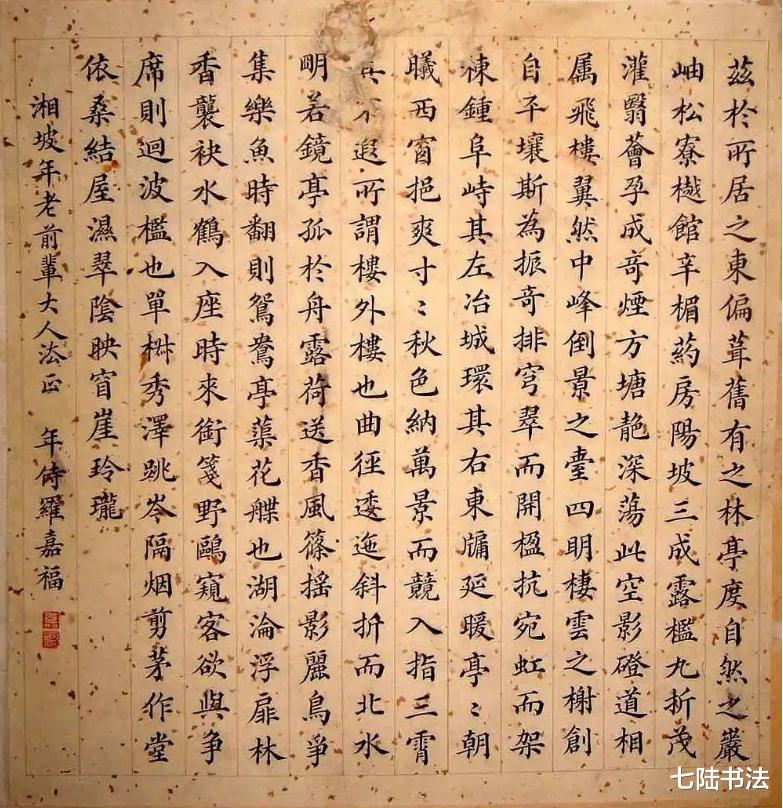 茲於所居之東偏葺舊有之林亭度自然之巖
岫松寮樾館辛楣葯房陽坡三成露檻九折茂
灌翳薈孕成奇煙方塘靘深蕩此空影磴道相
属飛樓翼然中峰倒景之臺四明棲雲之榭創
自平壤斯為振奇排穹翠而開楹抗宛虹而架
棟鍾阜峙其左冶城環其右東牖延暖亭〻朝
曦西窗挹爽寸〻秋色納萬景而競入指三霄
其不遐所謂樓外樓也曲徑逶迤斜折而北水
明若鏡亭孤於舟露荷送香風篠搖影麗鳥爭
集樂魚時翻則鴛鴦亭蕖花艓也湖淪浮扉林
香襲袂水鶴入座時來銜箋野鷗窺客欲與爭
席則迴波檻也單椒秀澤跳岑隔烟剪茅作堂
依桑結屋濕翠陰映窅崖玲瓏
湘坡年老前輩大人法正 年侍羅嘉福
七陆书法